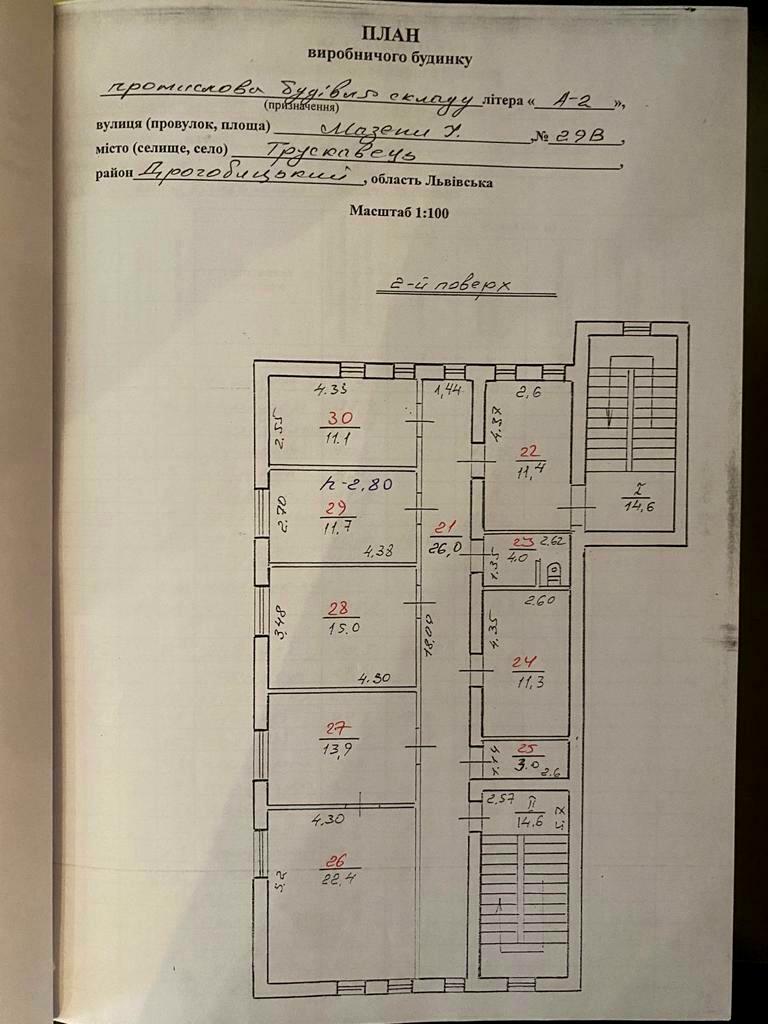 ПЛАН
виробничого будинку
промислова будівля складу літера « А-2 »,
(призначення)
вулиця (провулок, площа) Мазепи У. , № 29В ,
місто (селище, село) Трускавець ,
район Дрогобицький , область Львівська
Масштаб 1:100
2-й поверх
4.33
1,44
2,6
2.55
30
11.1
4.37
22
11,4
I
14,6
h-2,80
2,70
29
11,7
4.38
21
26,0
23
4.0
2.62
1.35
3,48
28
15.0
4.30
18,00
2.60
4.35
24
11,3
27
13,9
25
3.0
1.14
2.6
4,30
2,57
II
14.6
26
22,4
5,2